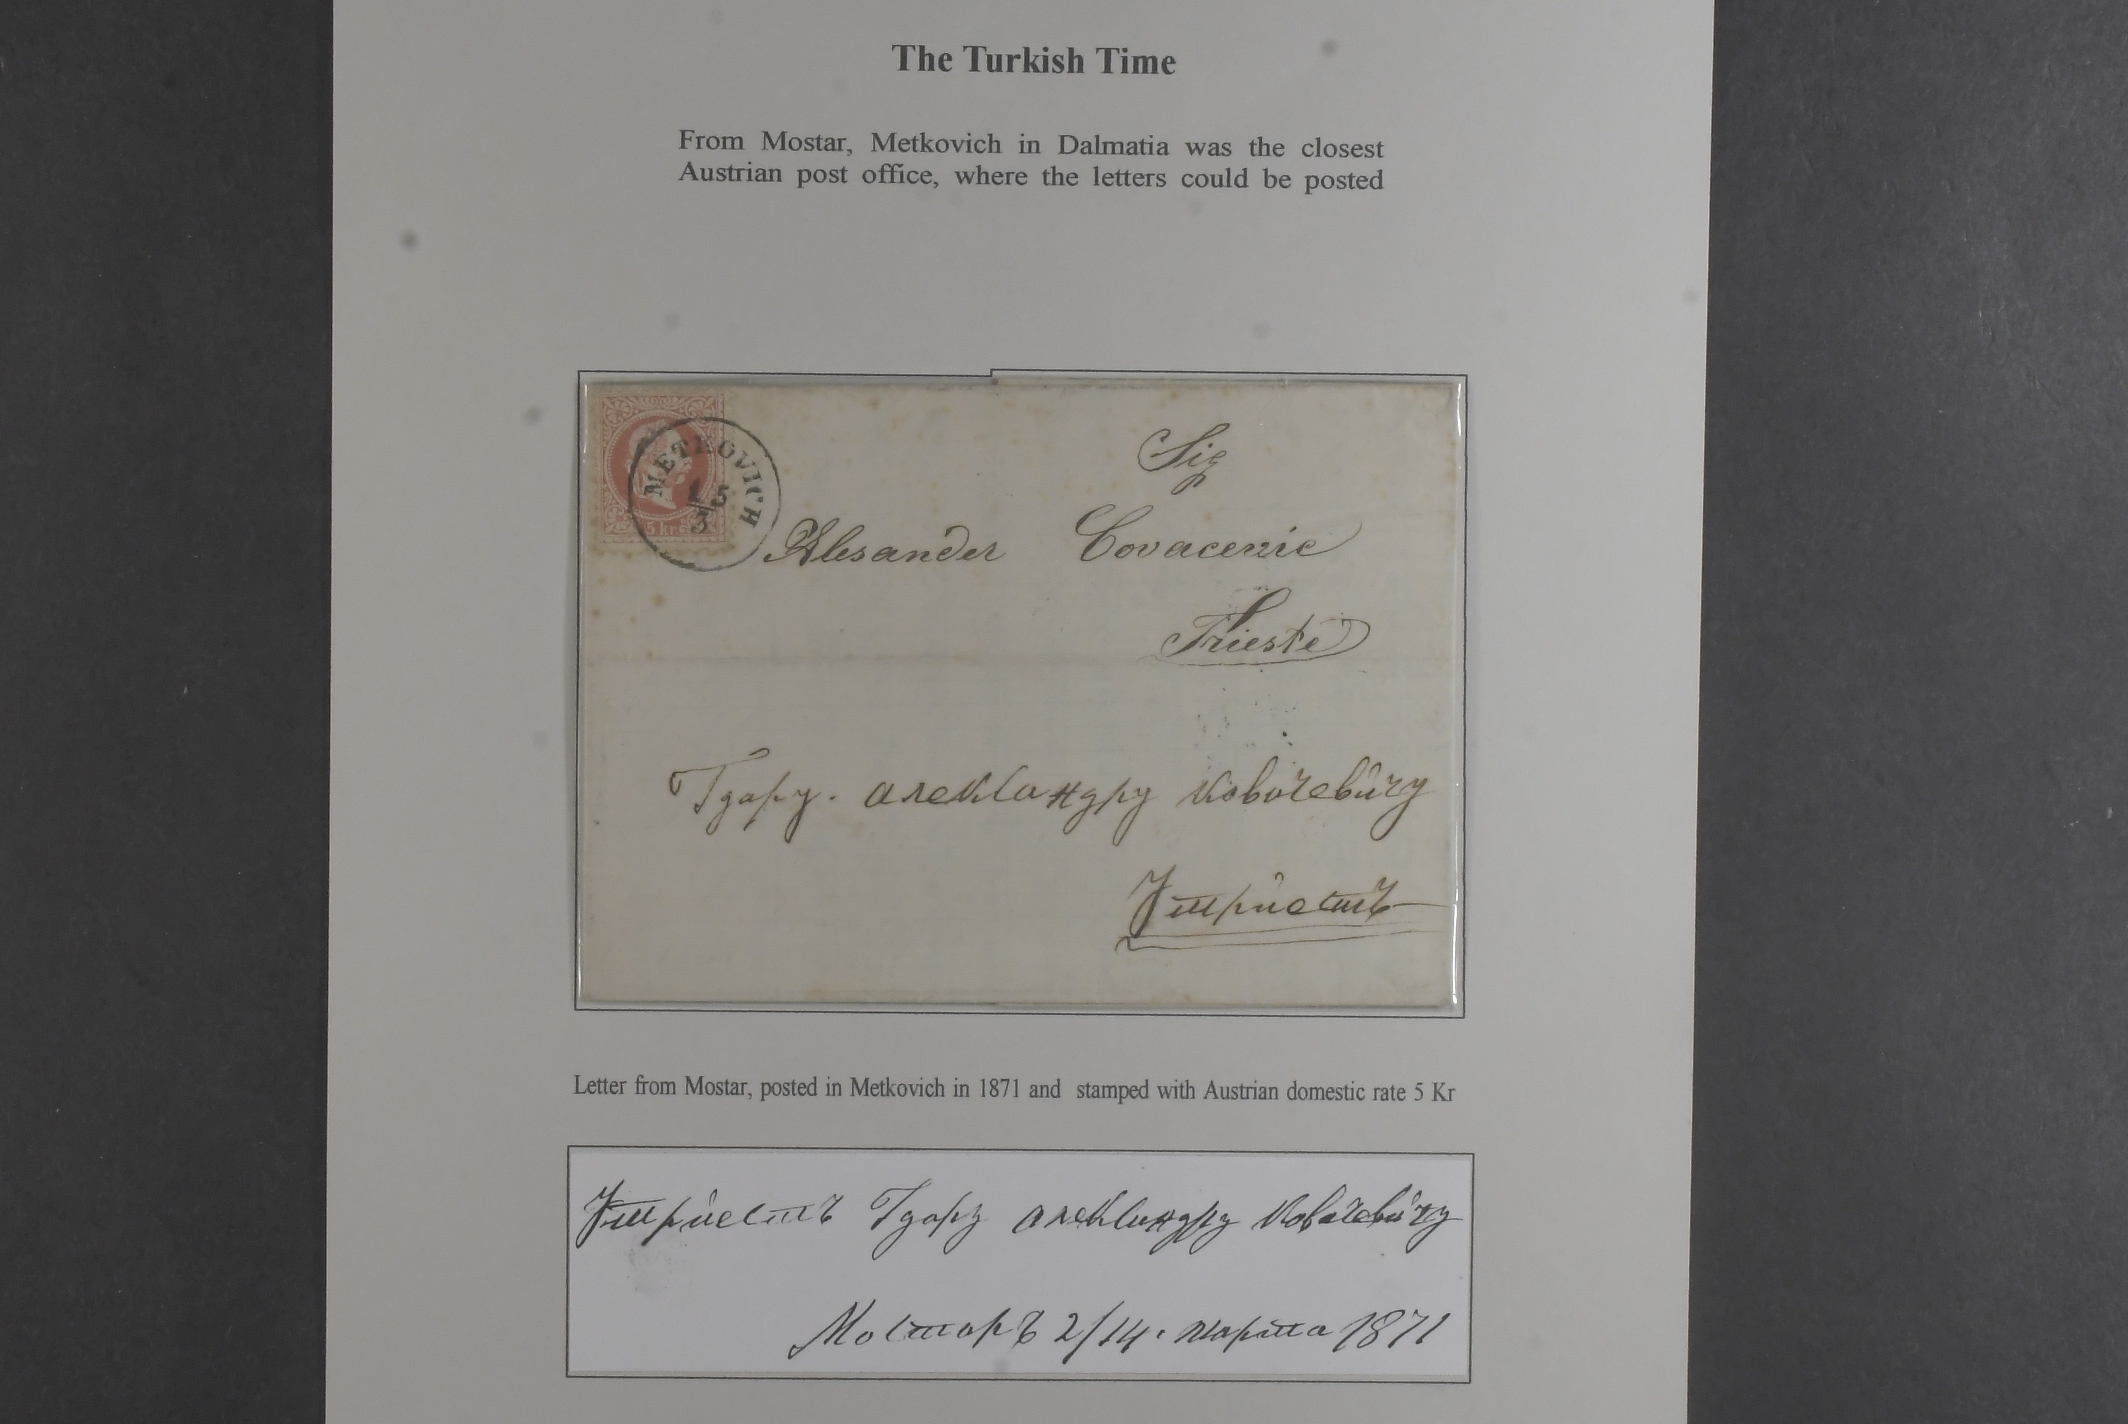 The Turkish Time
From Mostar, Metkovich in Dalmatia was the closest
Austrian post office, where the letters could be posted
5 kr
METKOVICH
15
3
Sig
Alesander Covacevic
Trieste
Гдару. александру Ковачевићу
Утриестъ
Letter from Mostar, posted in Metkovich in 1871 and stamped with Austrian domestic rate 5 Kr
Утриестъ Гдару александру Ковачевићу
Мостаръ 2/14. марта 1871